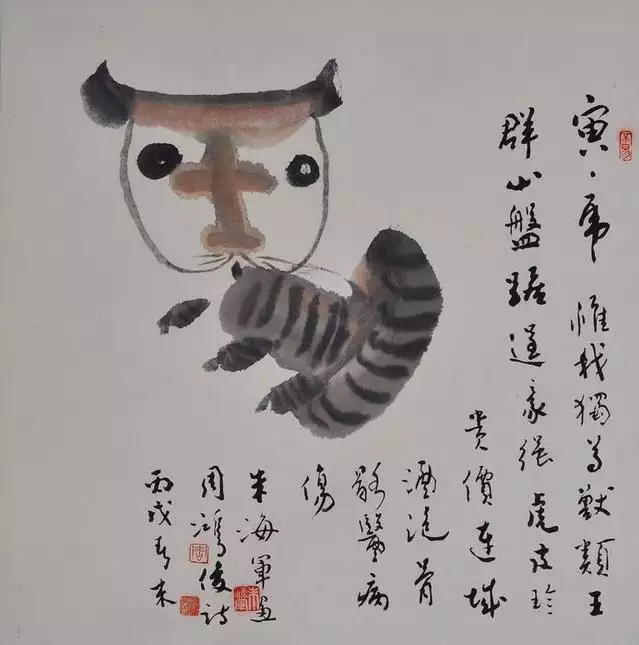 寅、虎 惟我獨尊獸類王
群山盤踞逞豪强 虎皮珍
貴價連城
酒泡骨
骸醫病
傷
朱海军画
周鴻俊詩
丙戌春末
3